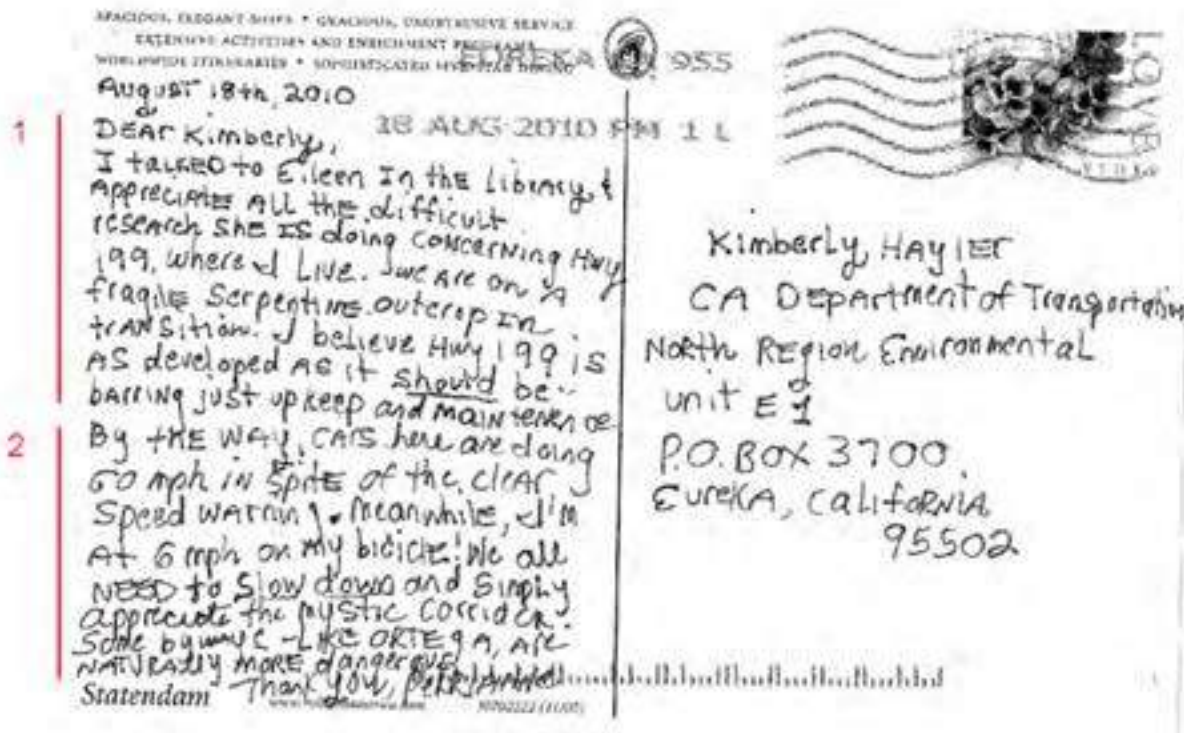 SPACIOUS, ELEGANT SHIPS • GRACIOUS, UNOBTRUSIVE SERVICE
EXTENSIVE ACTIVITIES AND ENRICHMENT PROGRAMS
WORLDWIDE ITINERARIES • SOPHISTICATED FIVE-STAR DINING
EUREKA 955
18 AUG 2010 PM 1 L
August 18th, 2010
1
DEAR Kimberly,
I talked to Eileen In the Library, &
Appreciate ALL the difficult
research She IS doing concerning Hwy
199, where I Live. We are on A
fragile Serpentine outcrop In
transition. I believe Hwy 199 is
AS developed AS it should be --
barring just upkeep and maintenence
2
By the WAY, CArs here are doing
60 mph in Spite of the clear
Speed warning. Meanwhile, I'm
At 6 mph on my bicicle! We all
NEED to Slow down and Simply
appreciate the mystic Corridor.
Some byways - LIKE ORTEGA, Are
NATURAlly more dangerous.
Thank you,
Statendam
Kimberly HAyler
CA Department of Transportation
North REgion Environmental
unit E1
P.O. BOX 3700
EurekA, CaliforNIA
95502